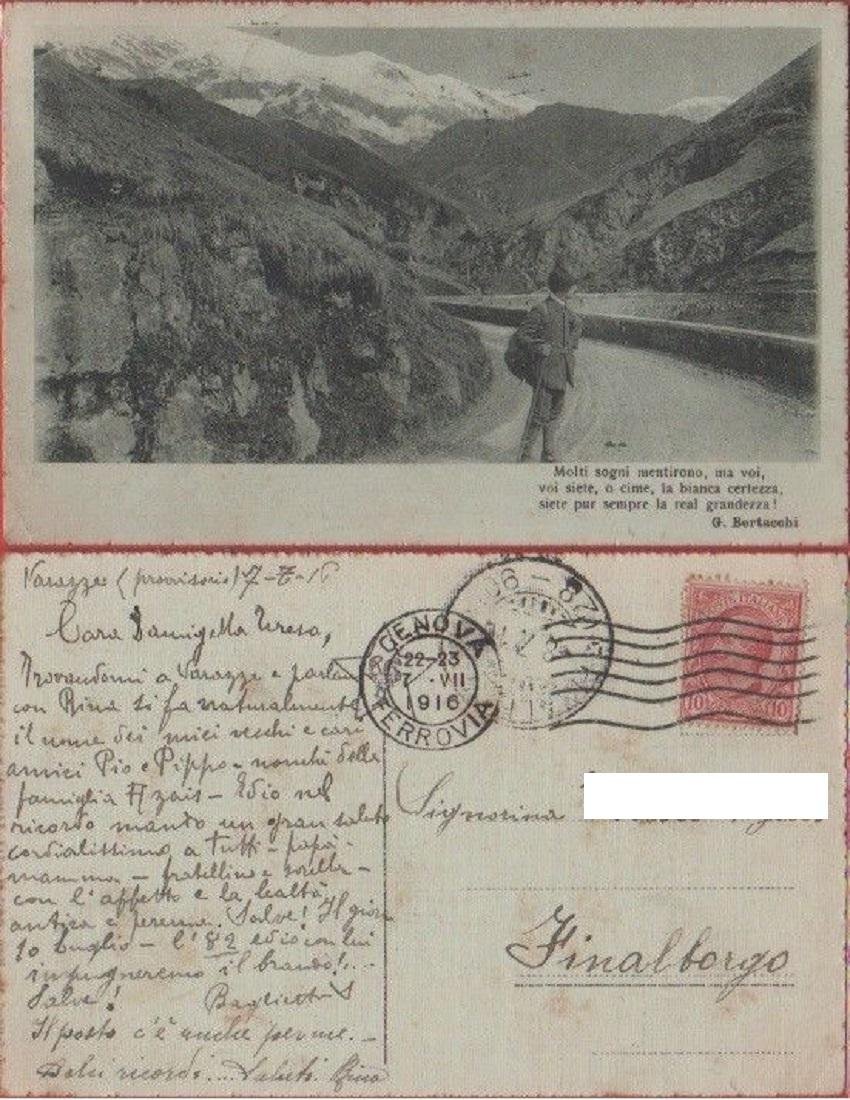 Molti sogni mentirono, ma voi,
voi siete, o cime, la bianca certezza,
siete pur sempre la real grandezza!
G. Bertacchi
Varazze (provvisorio) 7-7-16
Cara Damigella Teresa,
Trovandomi a Varazze e parlan
con Rina si fa naturalmente
il nome dei miei vecchi e cari
amici Pio e Pippo - nonchè della
famiglia Azais - Ed io nel
ricordo mando un gran saluto
cordialissimo a tutti - papà -
mamma - fratellino e sorella -
con l'affetto e la lealtà
antica e perenne. Salve! Il gior
10 luglio - l'82 ed io con lui
impugneremo il brando!...
Salve! Baglietto S
Il posto c'è anche per me. -
Dolci ricordi... Saluti. Rina
GENOVA
22-23
7 VII
1916
FERROVIA
10 10
Signorina
Finalborgo